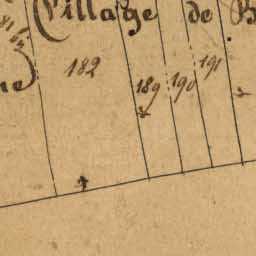 Village de
182
189
190
191